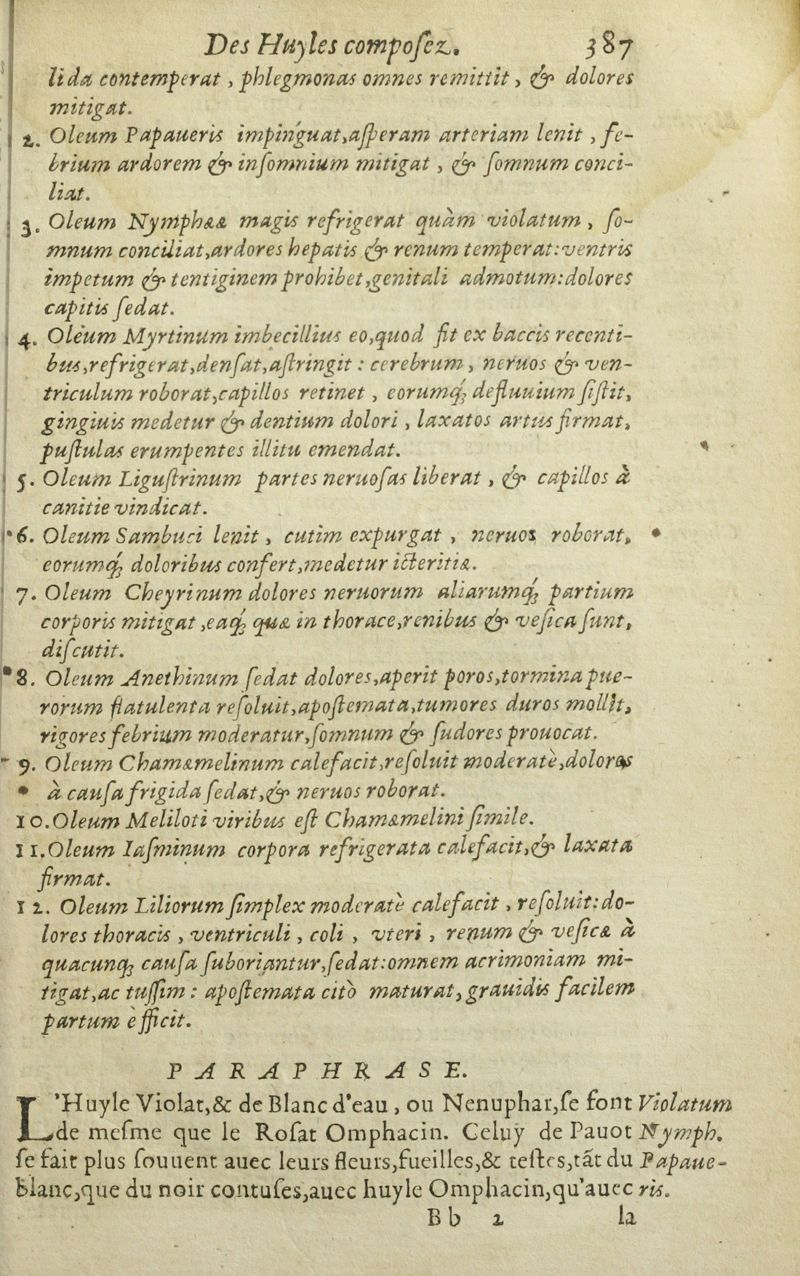 Des Huyles compoſez. 387
lida contemperat, phlegmonas omnes remittit, & dolores
mitigat.
2. Oleum Papaueris impinguat, aſperam arteriam lenit, fe-
brium ardorem & inſomnium mitigat, & ſomnum conci-
liat.
3. Oleum Nymphææ magis refrigerat quàm violatum, ſo-
mnum conciliat, ardores hepatis & renum temperat: ventris
impetum & tentiginem prohibet, genitali admotum: dolores
capitis ſedat.
4. Oleum Myrtinum imbecillius eo, quod fit ex baccis recenti-
bus, refrigerat, denſat, aſtringit: cerebrum, neruos & ven-
triculum roborat, capillos retinet, eorumq; defluuium ſiſtit,
gingiuis medetur & dentium dolori, laxatos artus firmat,
puſtulas erumpentes illitu emendat.
5. Oleum Liguſtrinum partes neruoſas liberat, & capillos à
canitie vindicat.
*6. Oleum Sambuci lenit, cutim expurgat, neruos roborat,
eorumq; doloribus confert, medetur icteritiæ.
7. Oleum Cheyrinum dolores neruorum aliarumq; partium
corporis mitigat, eaq; quæ in thorace, renibus & veſica ſunt,
diſcutit.
*8. Oleum Anethinum ſedat dolores, aperit poros, tormina pue-
rorum flatulenta reſoluit, apoſtemata, tumores duros mollit,
rigores febrium moderatur, ſomnum & ſudores prouocat.
9. Oleum Chamæmelinum calefacit, reſoluit moderatè, dolores
à cauſa frigida ſedat, & neruos roborat.
10. Oleum Meliloti viribus eſt Chamæmelini ſimile.
11. Oleum Iaſminum corpora refrigerata calefacit, & laxata
firmat.
12. Oleum Liliorum ſimplex moderatè calefacit, reſoluit: do-
lores thoracis, ventriculi, coli, vteri, renum & veſicæ à
quacunq; cauſa ſuboriantur, ſedat: omnem acrimoniam mi-
tigat, ac tuſſim: apoſtemata citò maturat, grauidis facilem
partum efficit.
PARAPHRASE.
L'Huyle Violat, & de Blanc d'eau, ou Nenuphar, ſe font Violatum
de meſme que le Roſat Omphacin. Celuy de Pauot Nymph.
ſe fait plus ſouuent auec leurs fleurs, fueilles, & teſtes, tāt du Papaue-
blanc, que du noir contuſes, auec huyle Omphacin, qu'auec ris.
Bb 2 la